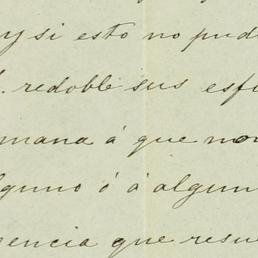 y si esto no pud
. redoble sus esf
mana á que no
lguno ó á algun
encia que resu